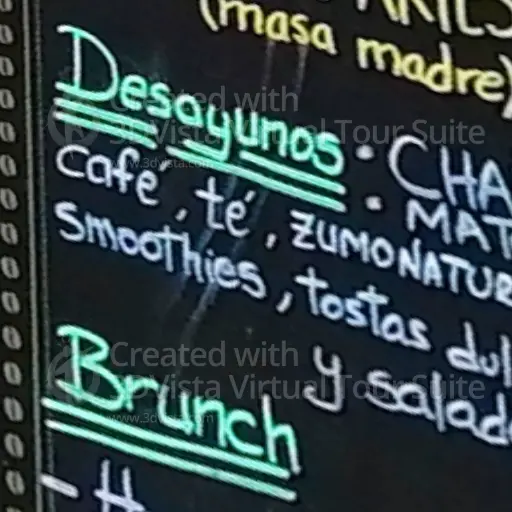 (masa madre)
Desayunos: CHA
café, té, MAT
ZUMO NATUR
smoothies, tostas dul
y salad
Brunch
- H
Created with
3DVista Virtual Tour Suite
www.3dvista.com
Created with
3DVista Virtual Tour Suite
www.3dvista.com